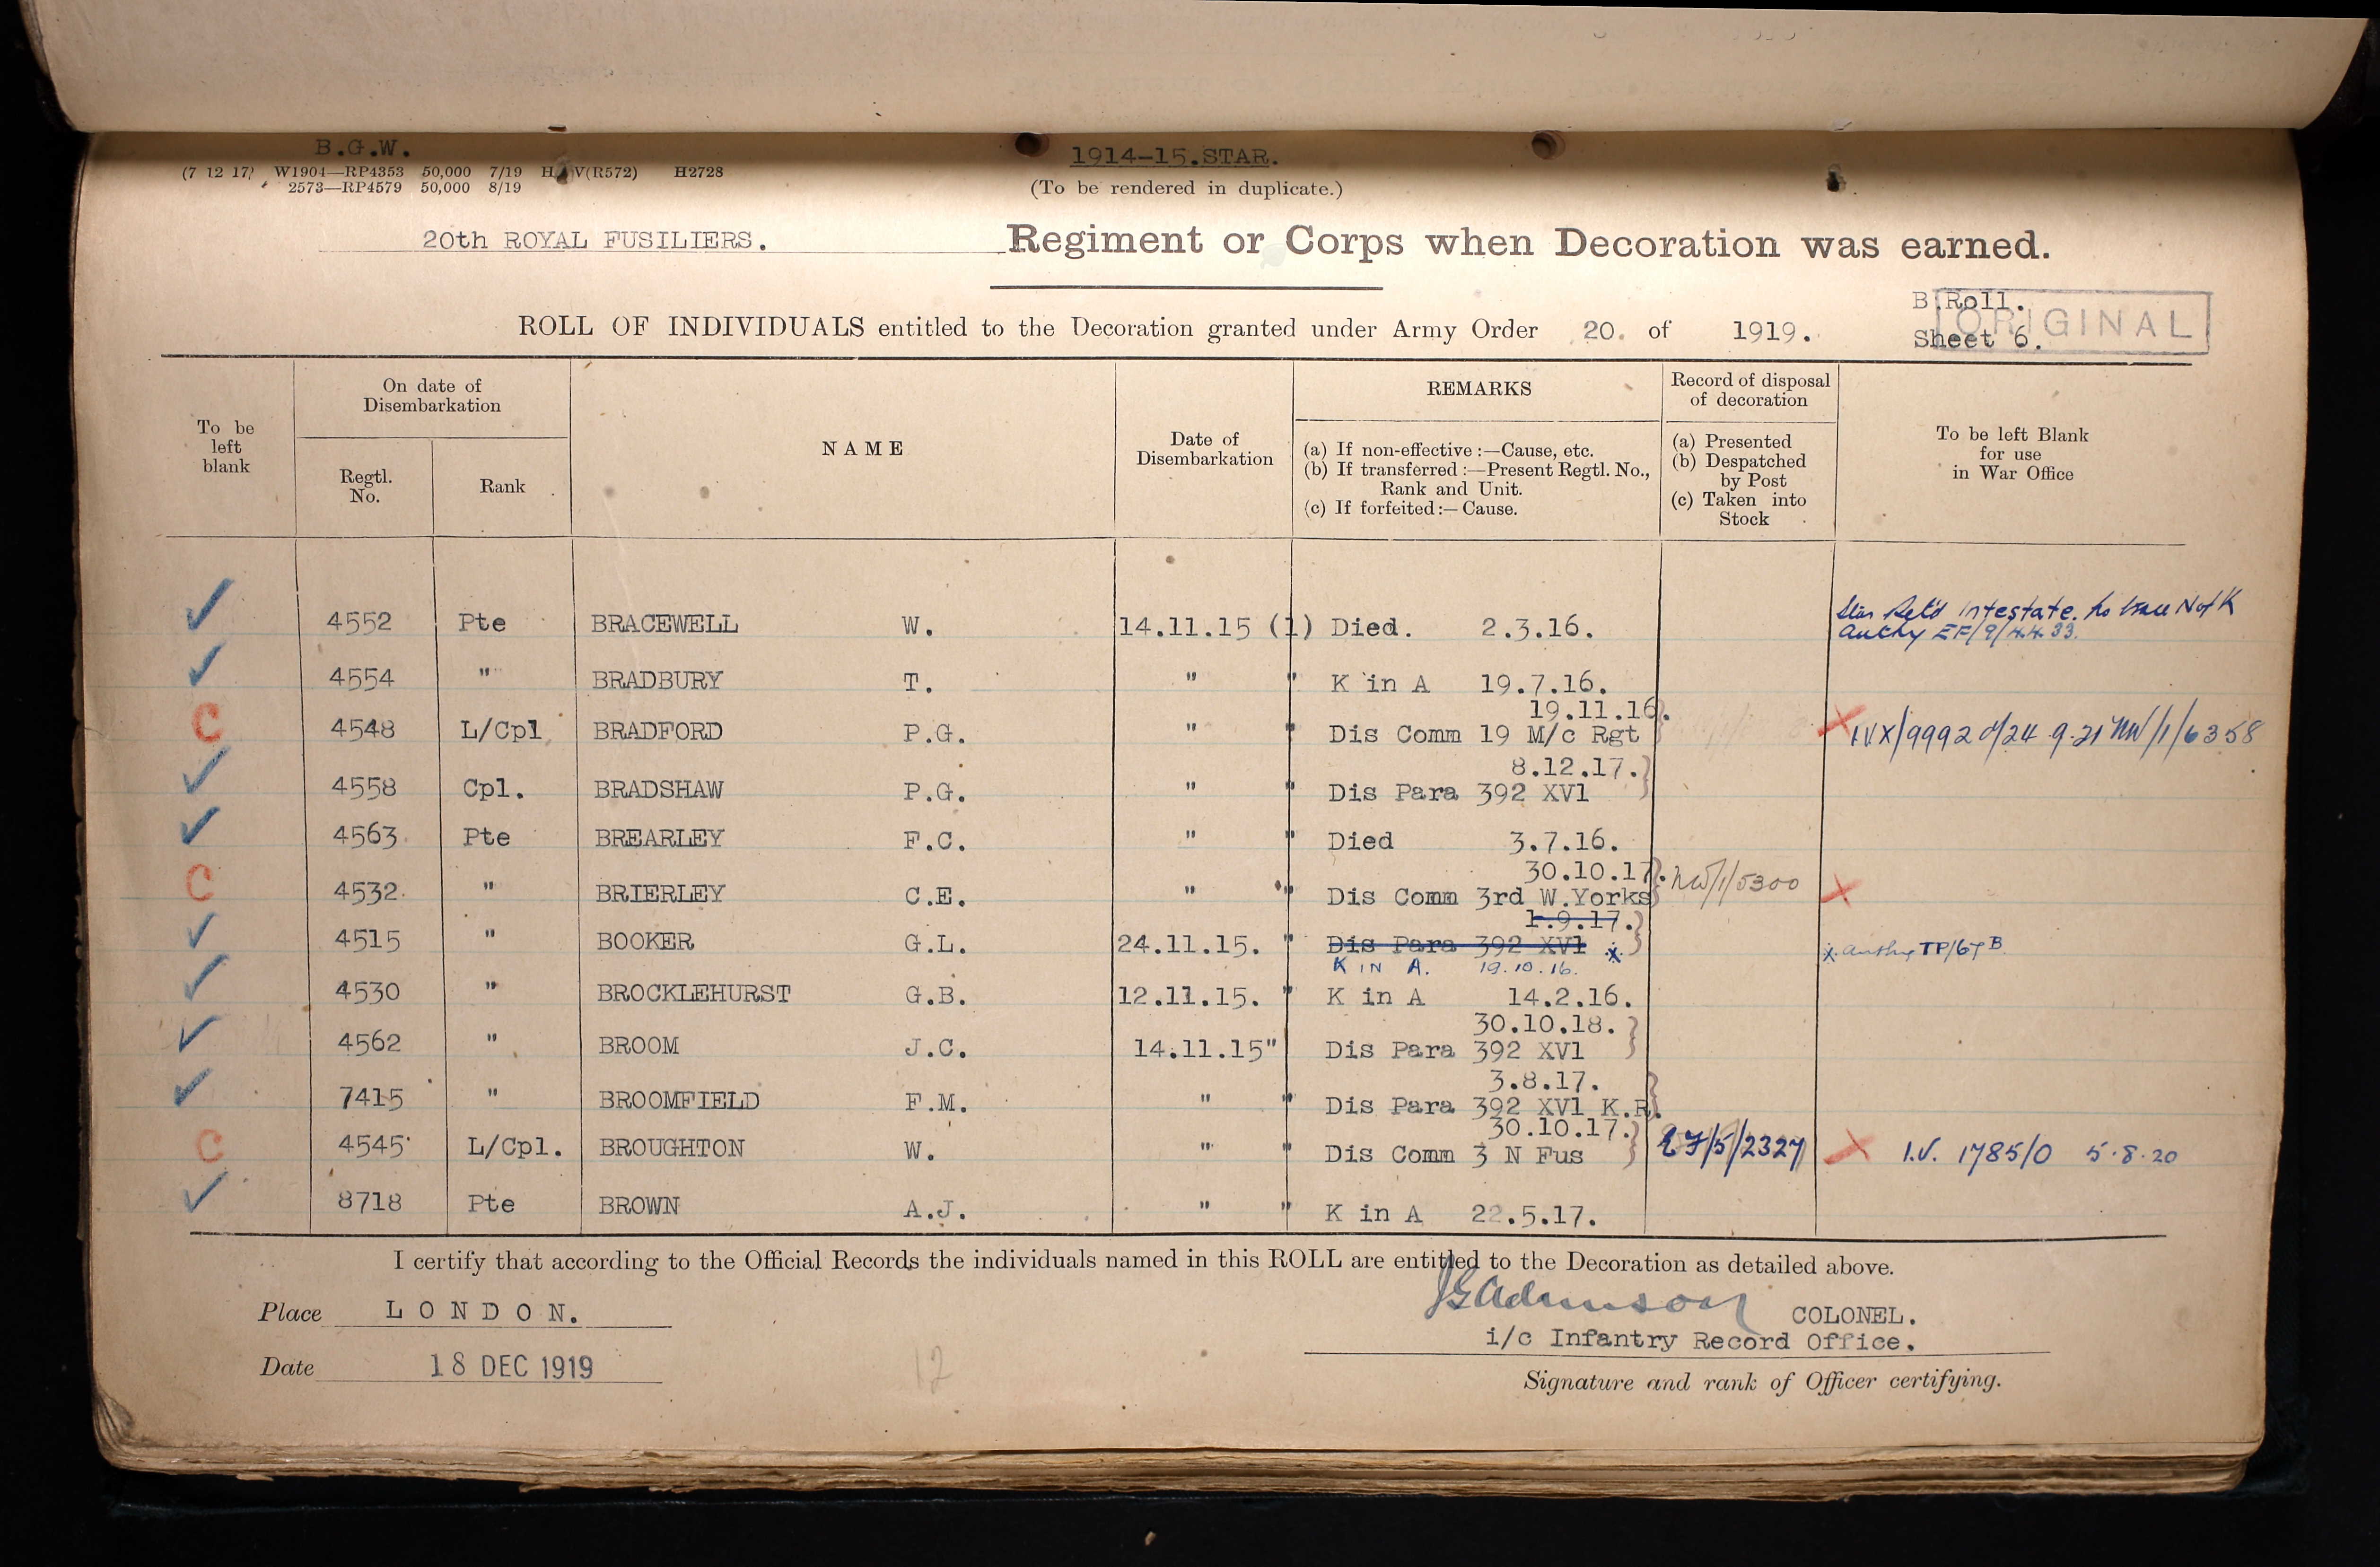 B.G.W.
(7 12 17) W1904—RP4353 50,000 7/19 H V(R572) H2728
2573—RP4579 50,000 8/19
1914-15.STAR.
(To be rendered in duplicate.)
20th ROYAL FUSILIERS. Regiment or Corps when Decoration was earned.
B Roll.
ORIGINAL
ROLL OF INDIVIDUALS entitled to the Decoration granted under Army Order 20. of 1919. Sheet 6.
To be left blank
On date of Disembarkation
Regtl. No.
Rank
NAME
Date of Disembarkation
REMARKS
(a) If non-effective :—Cause, etc.
(b) If transferred :—Present Regtl. No.,
Rank and Unit.
(c) If forfeited :— Cause.
Record of disposal
of decoration
(a) Presented
(b) Despatched
by Post
(c) Taken into
Stock
To be left Blank
for use
in War Office
✓ 4552 Pte BRACEWELL W. 14.11.15 (1) Died. 2.3.16. Star Ret'd intestate. No trace N of K
Authy EF/9/4.4.33.
✓ 4554 " BRADBURY T. " " K in A 19.7.16.
19.11.16.
C 4548 L/Cpl BRADFORD P.G. " " Dis Comm 19 M/c Rgt X IVX/9992 d/24.9.21 NW/1/6358
8.12.17.
✓ 4558 Cpl. BRADSHAW P.G. " " Dis Para 392 XVl
✓ 4563 Pte BREARLEY F.C. " " Died 3.7.16.
30.10.17.
C 4532 " BRIERLEY C.E. " " Dis Comm 3rd W.Yorks NW/1/5300 X
1.9.17.
✓ 4515 " BOOKER G.L. 24.11.15. " Dis Para 392 XVl x x Authy TP/67 B
K IN A. 19.10.16.
✓ 4530 " BROCKLEHURST G.B. 12.11.15. " K in A 14.2.16.
30.10.18.
✓ 4562 " BROOM J.C. 14.11.15" Dis Para 392 XVl
3.8.17.
✓ 7415 " BROOMFIELD F.M. " " Dis Para 392 XVl K.R.
30.10.17.
C 4545 L/Cpl. BROUGHTON W. " " Dis Comm 3 N Fus EF/5/2327 X I.V. 1785/O 5.8.20
✓ 8718 Pte BROWN A.J. " " K in A 22.5.17.
I certify that according to the Official Records the individuals named in this ROLL are entitled to the Decoration as detailed above.
Place LONDON.
JGAdamson COLONEL.
i/c Infantry Record Office.
Date 18 DEC 1919
12
Signature and rank of Officer certifying.